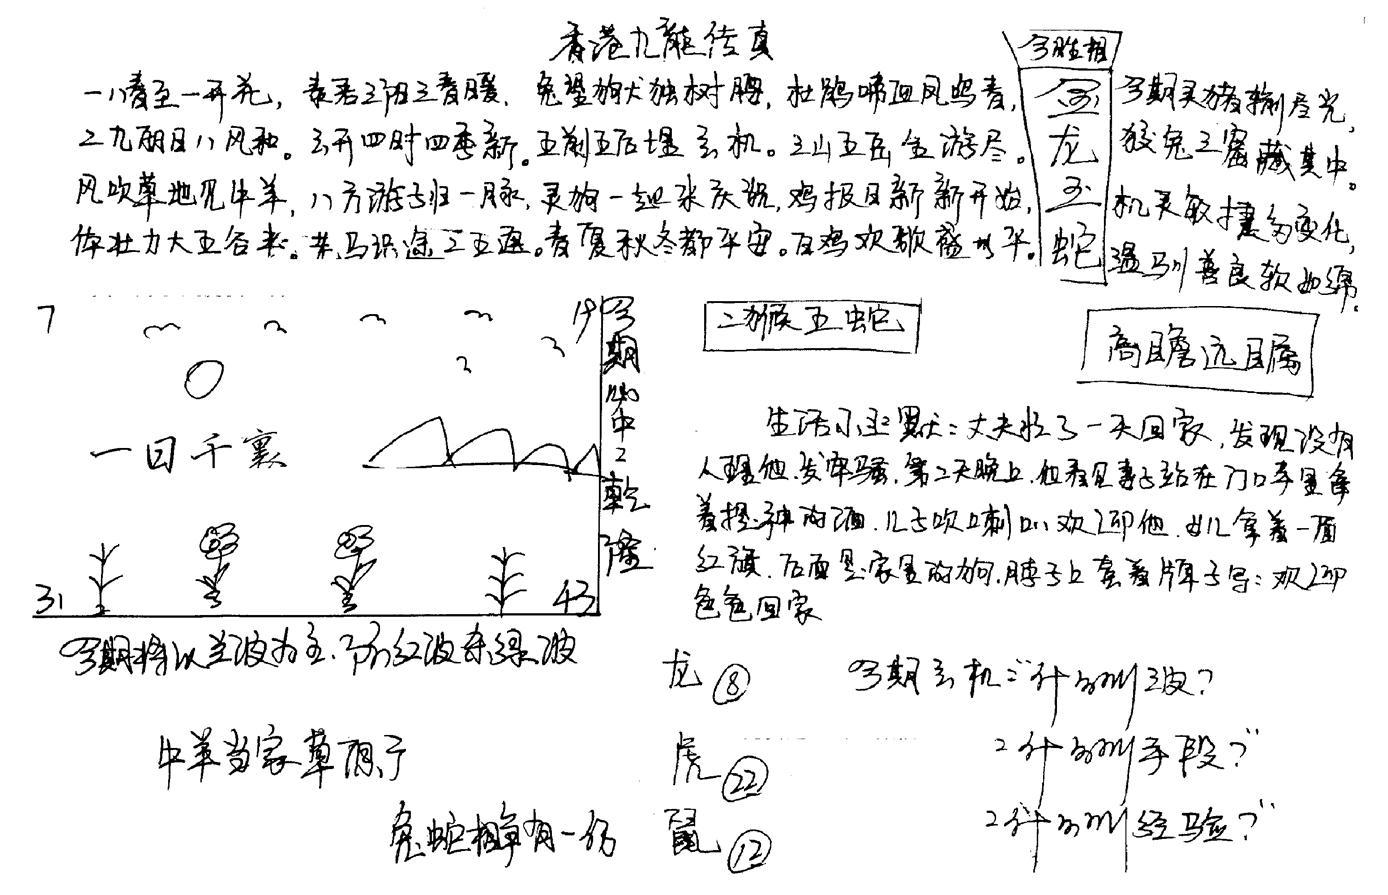 香港九龍传真
一八春至一开花，春君三阳三春暖，兔望狗犬独树腰，杜鹃啼血凤鸣春，
二九明日八风和。云开四时四季新。五前五后埋玄机。三山五岳全游尽。
风吹草地见牛羊，八方游子归一脉，灵狗一起来庆祝，鸡报日新新开始，
体壮力大五谷丰。老马识途二五遇。春夏秋冬都平安。百鸡欢歌盛世平。
今胜相
金
龙
玉
蛇
今期灵猪输尽光，
狡兔三窟藏其中。
机灵敏捷多变化，
温驯善良软如绵。
7
19
一日千裏
31
43
今期必中2乾隆
二猴五蛇
高瞻远目属
生活小幽默：丈夫忙了一天回家，发现没有
人理他，发牢骚，第二天晚上，他看见妻子站在门口手里拿
着提神的酒，儿子吹口刺叭欢迎他，女儿拿着一面
红旗，后面是家里的狗，脖子上套着牌子写：欢迎
爸爸回家
今期将以兰波为主，防红波杀绿波
牛羊当家草原子
兔蛇相争有一伤
龙 ⑧
虎 ㉒
鼠 ⑫
今期玄机："什么叫波？
什么叫手段？"
什么叫经验？"